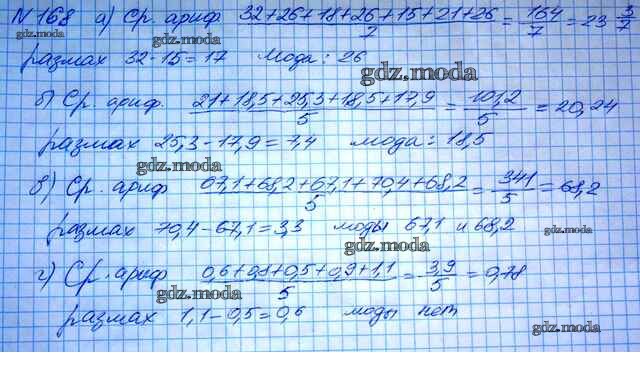 №168 а) Ср. ариф. 32+26+18+26+15+21+26 / 7 = 164 / 7 = 23 3/7
размах 32-15=17 Мода: 26
б) Ср. ариф. 21+18,5+25,3+18,5+17,9 / 5 = 101,2 / 5 = 20,24
размах 25,3-17,9=7,4 мода: 18,5
в) Ср. ариф 67,1+68,2+67,1+70,4+68,2 / 5 = 341 / 5 = 68,2
размах 70,4-67,1=3,3 моды 67,1 и 68,2
г) Ср. ариф 0,6+0,8+0,5+0,9+1,1 / 5 = 3,9 / 5 = 0,78
размах 1,1-0,5=0,6 моды нет
gdz.moda
gdz.moda
gdz.moda
gdz.moda
gdz.moda
gdz.moda
gdz.moda
gdz.moda
gdz.moda
gdz.moda
gdz.moda